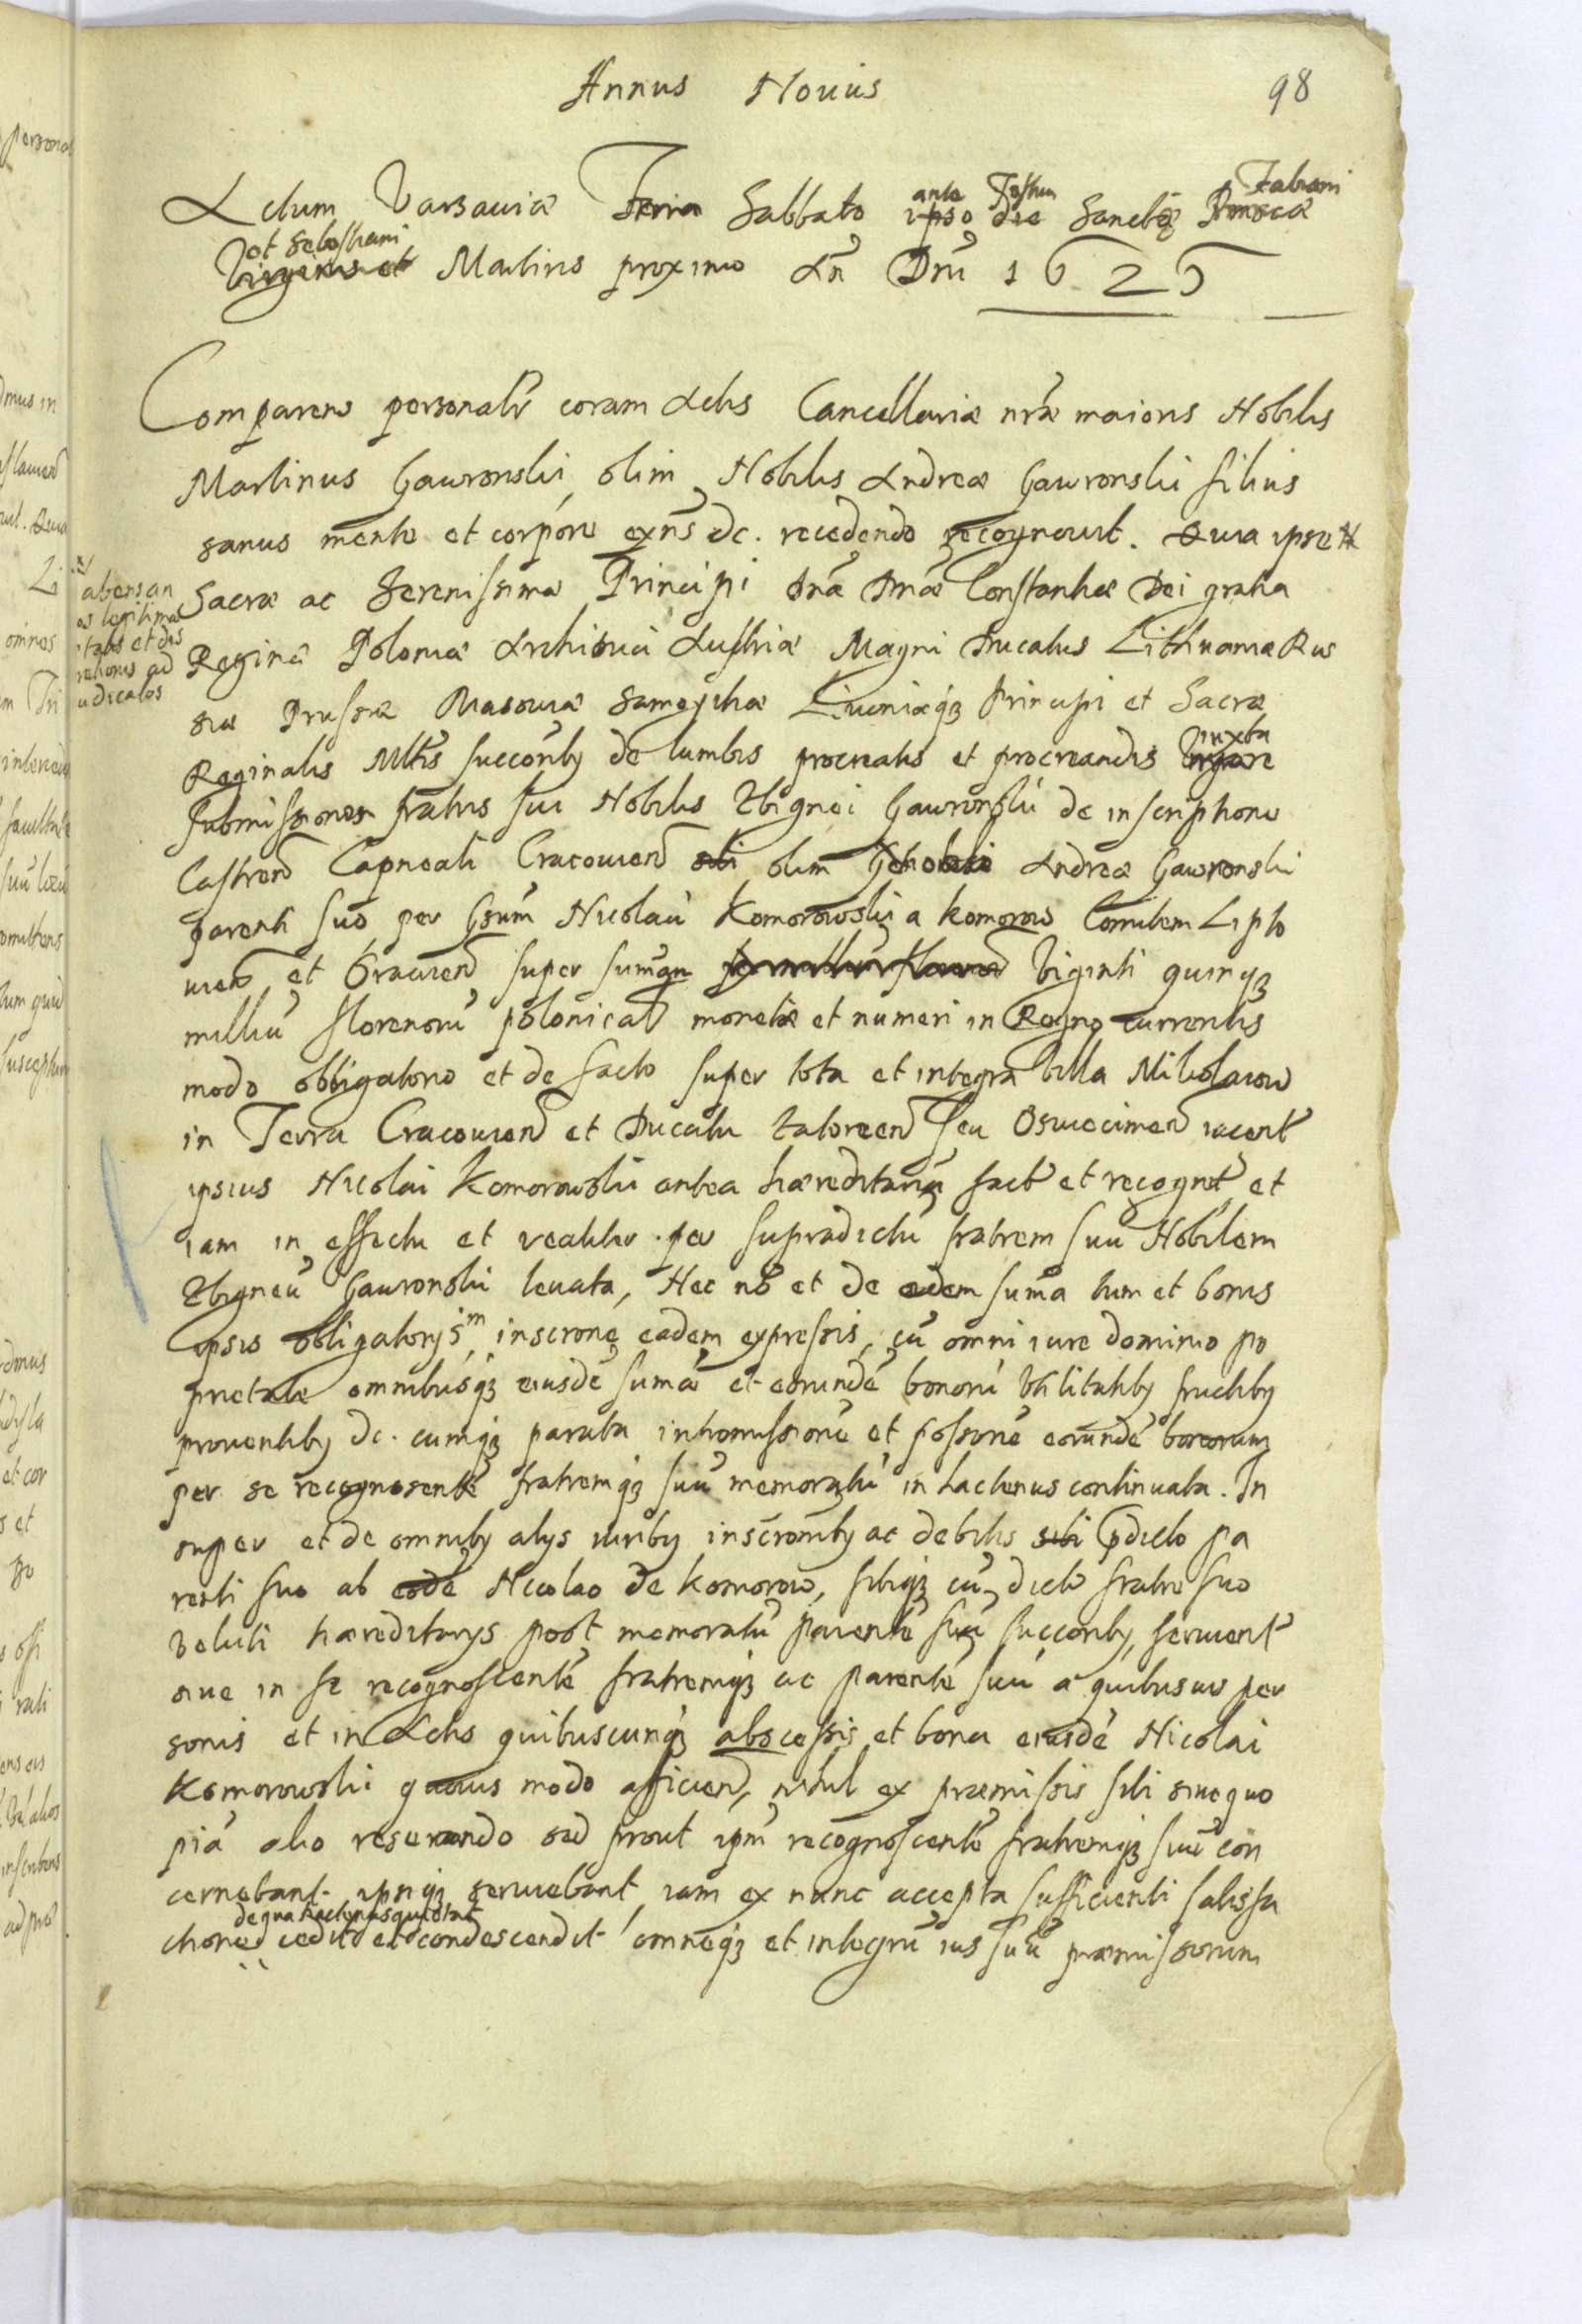 Annus Nouus 98
ante Festum Fabiani
Actum Varsauiæ Feria Sabbato ipso die Sanctæ Priscæ
et Sebastiani
Virginis et Martiris proximo An Dni 1625
Comparens personalr coram Actis Cancellariæ nræ maioris Nobilis
Martinus Gawronski, olim Nobilis Andreæ Gawronski filius
sanus mente et corpore exns &c. recedendo recognouit. Quia ipse
Sacræ ac Serenissimæ Principi Dnæ Dnæ Constantiæ Dei gratia
Reginæ Poloniæ Archiduci Austriæ Magni Ducatus Lithuaniæ Rus
siæ Prussiæ Masouiæ Samogitiæ Liuoniæq3 Principi et Sacræ
iuxta
Reginalis Mttis succonby de lumbis procreatis et procreandis
submissionem fratris sui Nobilis Zbignei Gawronski de inscriptione
Castren Capneali Cracouien sibi olim Andreæ Gawronski
parenti suo per Gsum Nicolau Komorowski a Komorow Comitem Lipto
uien et Orauien super suman Viginti quinq3
milliu florenoru polonical monetæ et numeri in Regno currentis
modo obligatorio et de facto super tota et integra Villa Mikolaiow
in Terra Cracouien et Ducatu Zatorien seu Osuiecimen iacent
ipsius Nicolai Komorowski antea hæreditaria fact et recognit et
iam in effectu et realiter per supradictu fratrem suu Nobilem
Zbigneu Gawronski leuata, Nec no et de eadem suma tum et bonis
ipsis obligatorys in inscrone eadem expressis, cu omni iure dominio po
prietate omnibusq3 eiusde sumæ et eorunde bonoru vtilitatiby fructiby
prouentiby &c. cumq3 parata intromissione et possone eorunde bonorum
per se recognosente fratremq3 suu memoratu in hactenus continuata. In
super et de omniby alys iuriby inscronby ac debitis sibi pdicto pa
renti suo ab eode Nicolao de Komorow, sibiq3 cu dicto fratre suo
veluti hæreditarys post memoratu parente suu succonby seruient
siue in se recognoscente fratremq3 ac parente suu a quibusuis per
sonis et in Actis quibuscunq3 abscessis et bona eiusde Nicolai
Komorowski quouis modo afficien, nihil ex præmissis sibi sine quo
pia alio reseruando sed prout ipm recognoscente fratremq3 suu con
cernebant ipsiq3 seruiebant iam ex nunc accepta sufficienti satisfa
de qua hactenus quietat
ctione cedit et condescendit omneq3 et integru ius suu præmissorum
abens an
os legitimæ
tatis et dis
retionis ad
udicatos